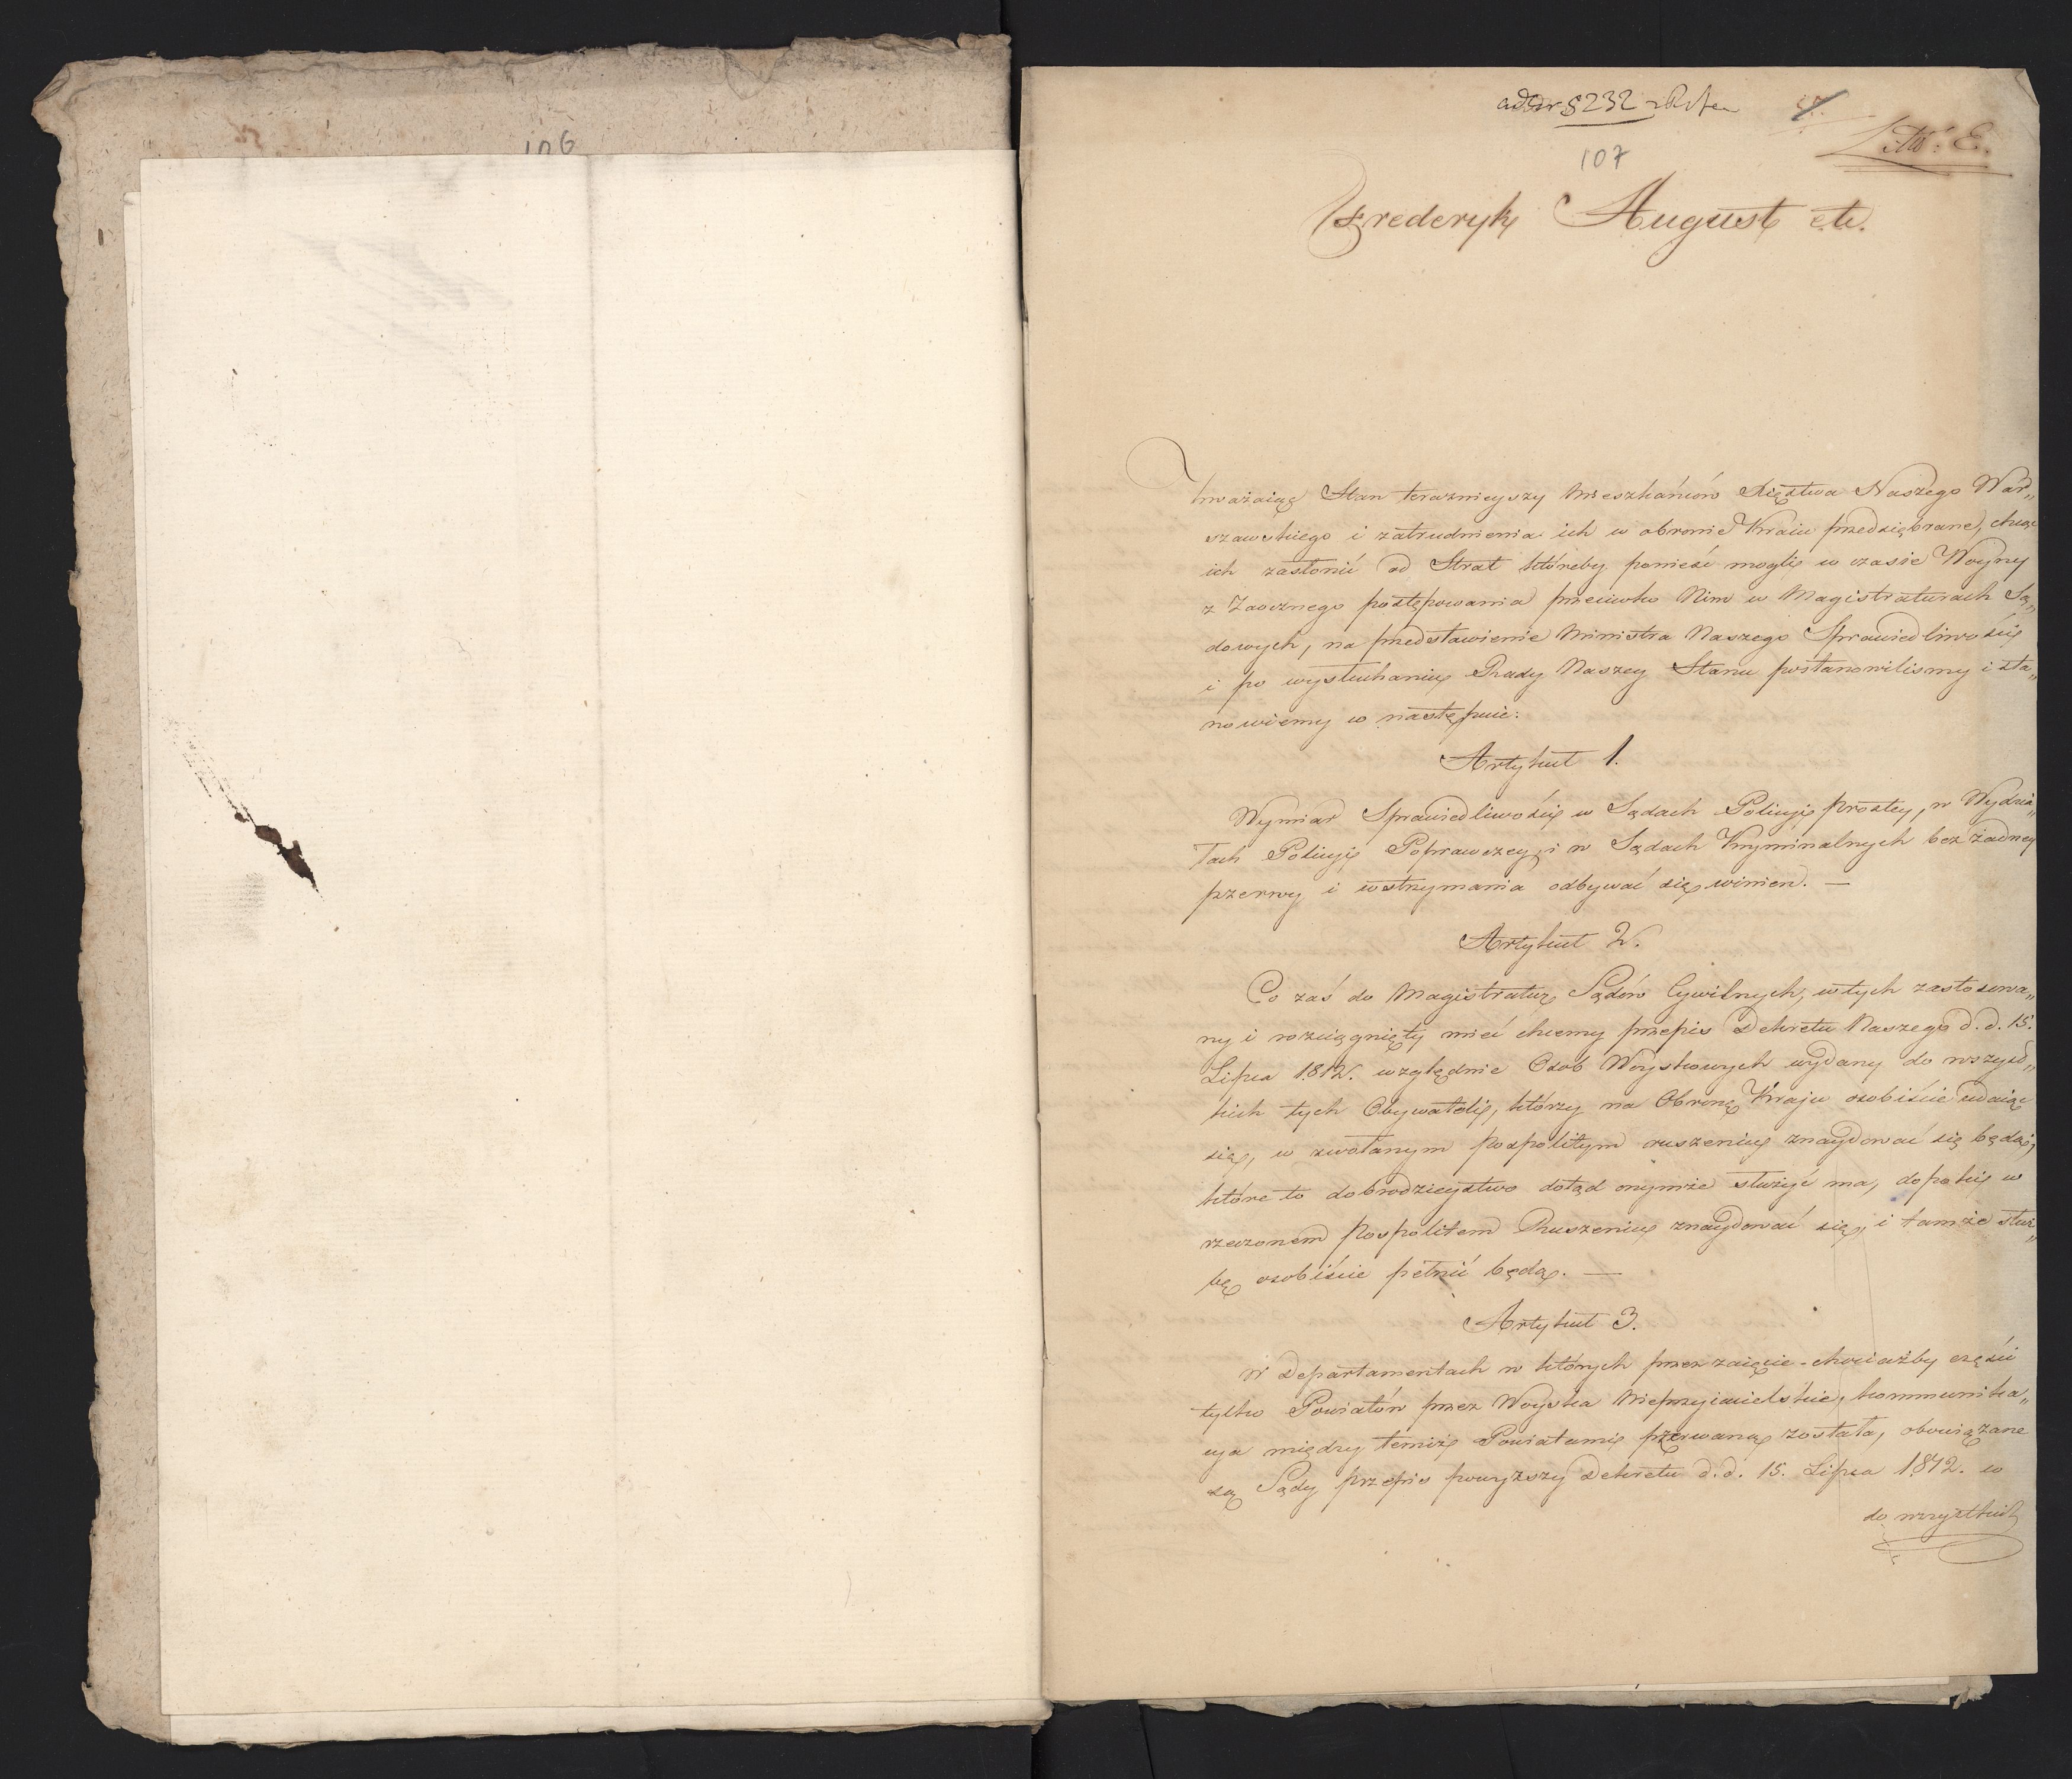 106
ad Nr 8232
107
Litt: E.
Frederyk August etc.
Uważaiąc Stan teraznieyszy Mieszkańców Xięstwa Naszego War„
szawskiego i zatrudnienia ich w obronie Kraiu przedsiębrane, chcąc
ich zasłonić od Strat któreby ponieść mogli w czasie Woyny
z Zaocznego postępowania przeciwko Nim w Magistraturach Są„
dowych, na przedstawienie Ministra Naszego Sprawiedliwości
i po wysłuchaniu Rady Naszey Stanu postanowilismy i sta„
nowiemy co następuie:
Artykuł 1.
Wymiar Sprawiedliwości w Sądach Policyi prostey, w Wydzia„
łach Policyi Poprawczey, i w Sądach Kryminalnych bez żadney
przerwy i wstrzymania odbywać się winien. —
Artykuł 2.
Co zaś do Magistratur Sądów Cywilnych, w tych zastosowa„
ny i rozciągnięty mieć chcemy przepis Dekretu Naszego d. d. 15.
Lipca 1812. względnie Osób Woyskowych wydany do wszyst„
kich tych Obywateli, którzy na Obronę Kraju osobiście udaiąc
się, w zwołanym pospolitym ruszeniu znaydować się będą,
które to dobrodzieystwo dotąd onymże służyć ma, dopoki w
rzeczonem Pospolitem Ruszeniu znaydować się, i tamże służ„
bę osobiście pełnić będą. —
Artykuł 3.
W Departamentach w których przez zaięcie chociażby części
tylko Powiatów przez Woyska Nieprzyiacielskie, kommunika„
cya między temiż Powiatami przerwaną została, obowiązane
są Sądy przepis powyższy Dekretu d. d. 15. Lipca 1812. w
do wszystkich